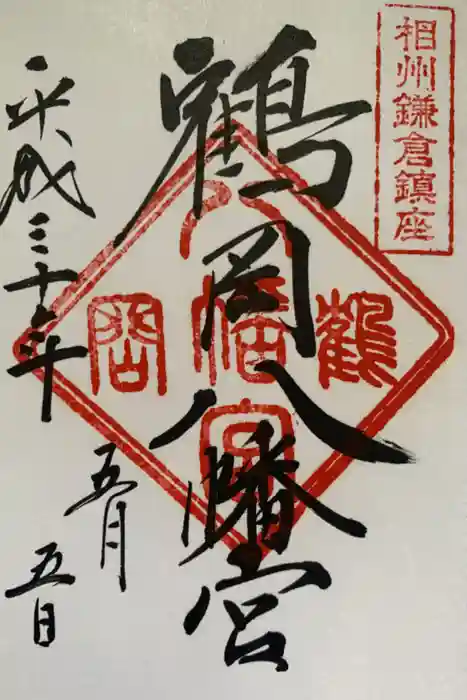 相州鎌倉鎮座
鶴岡八幡宮
鶴
岡
八
幡
宮
平成三十年
五月
五日